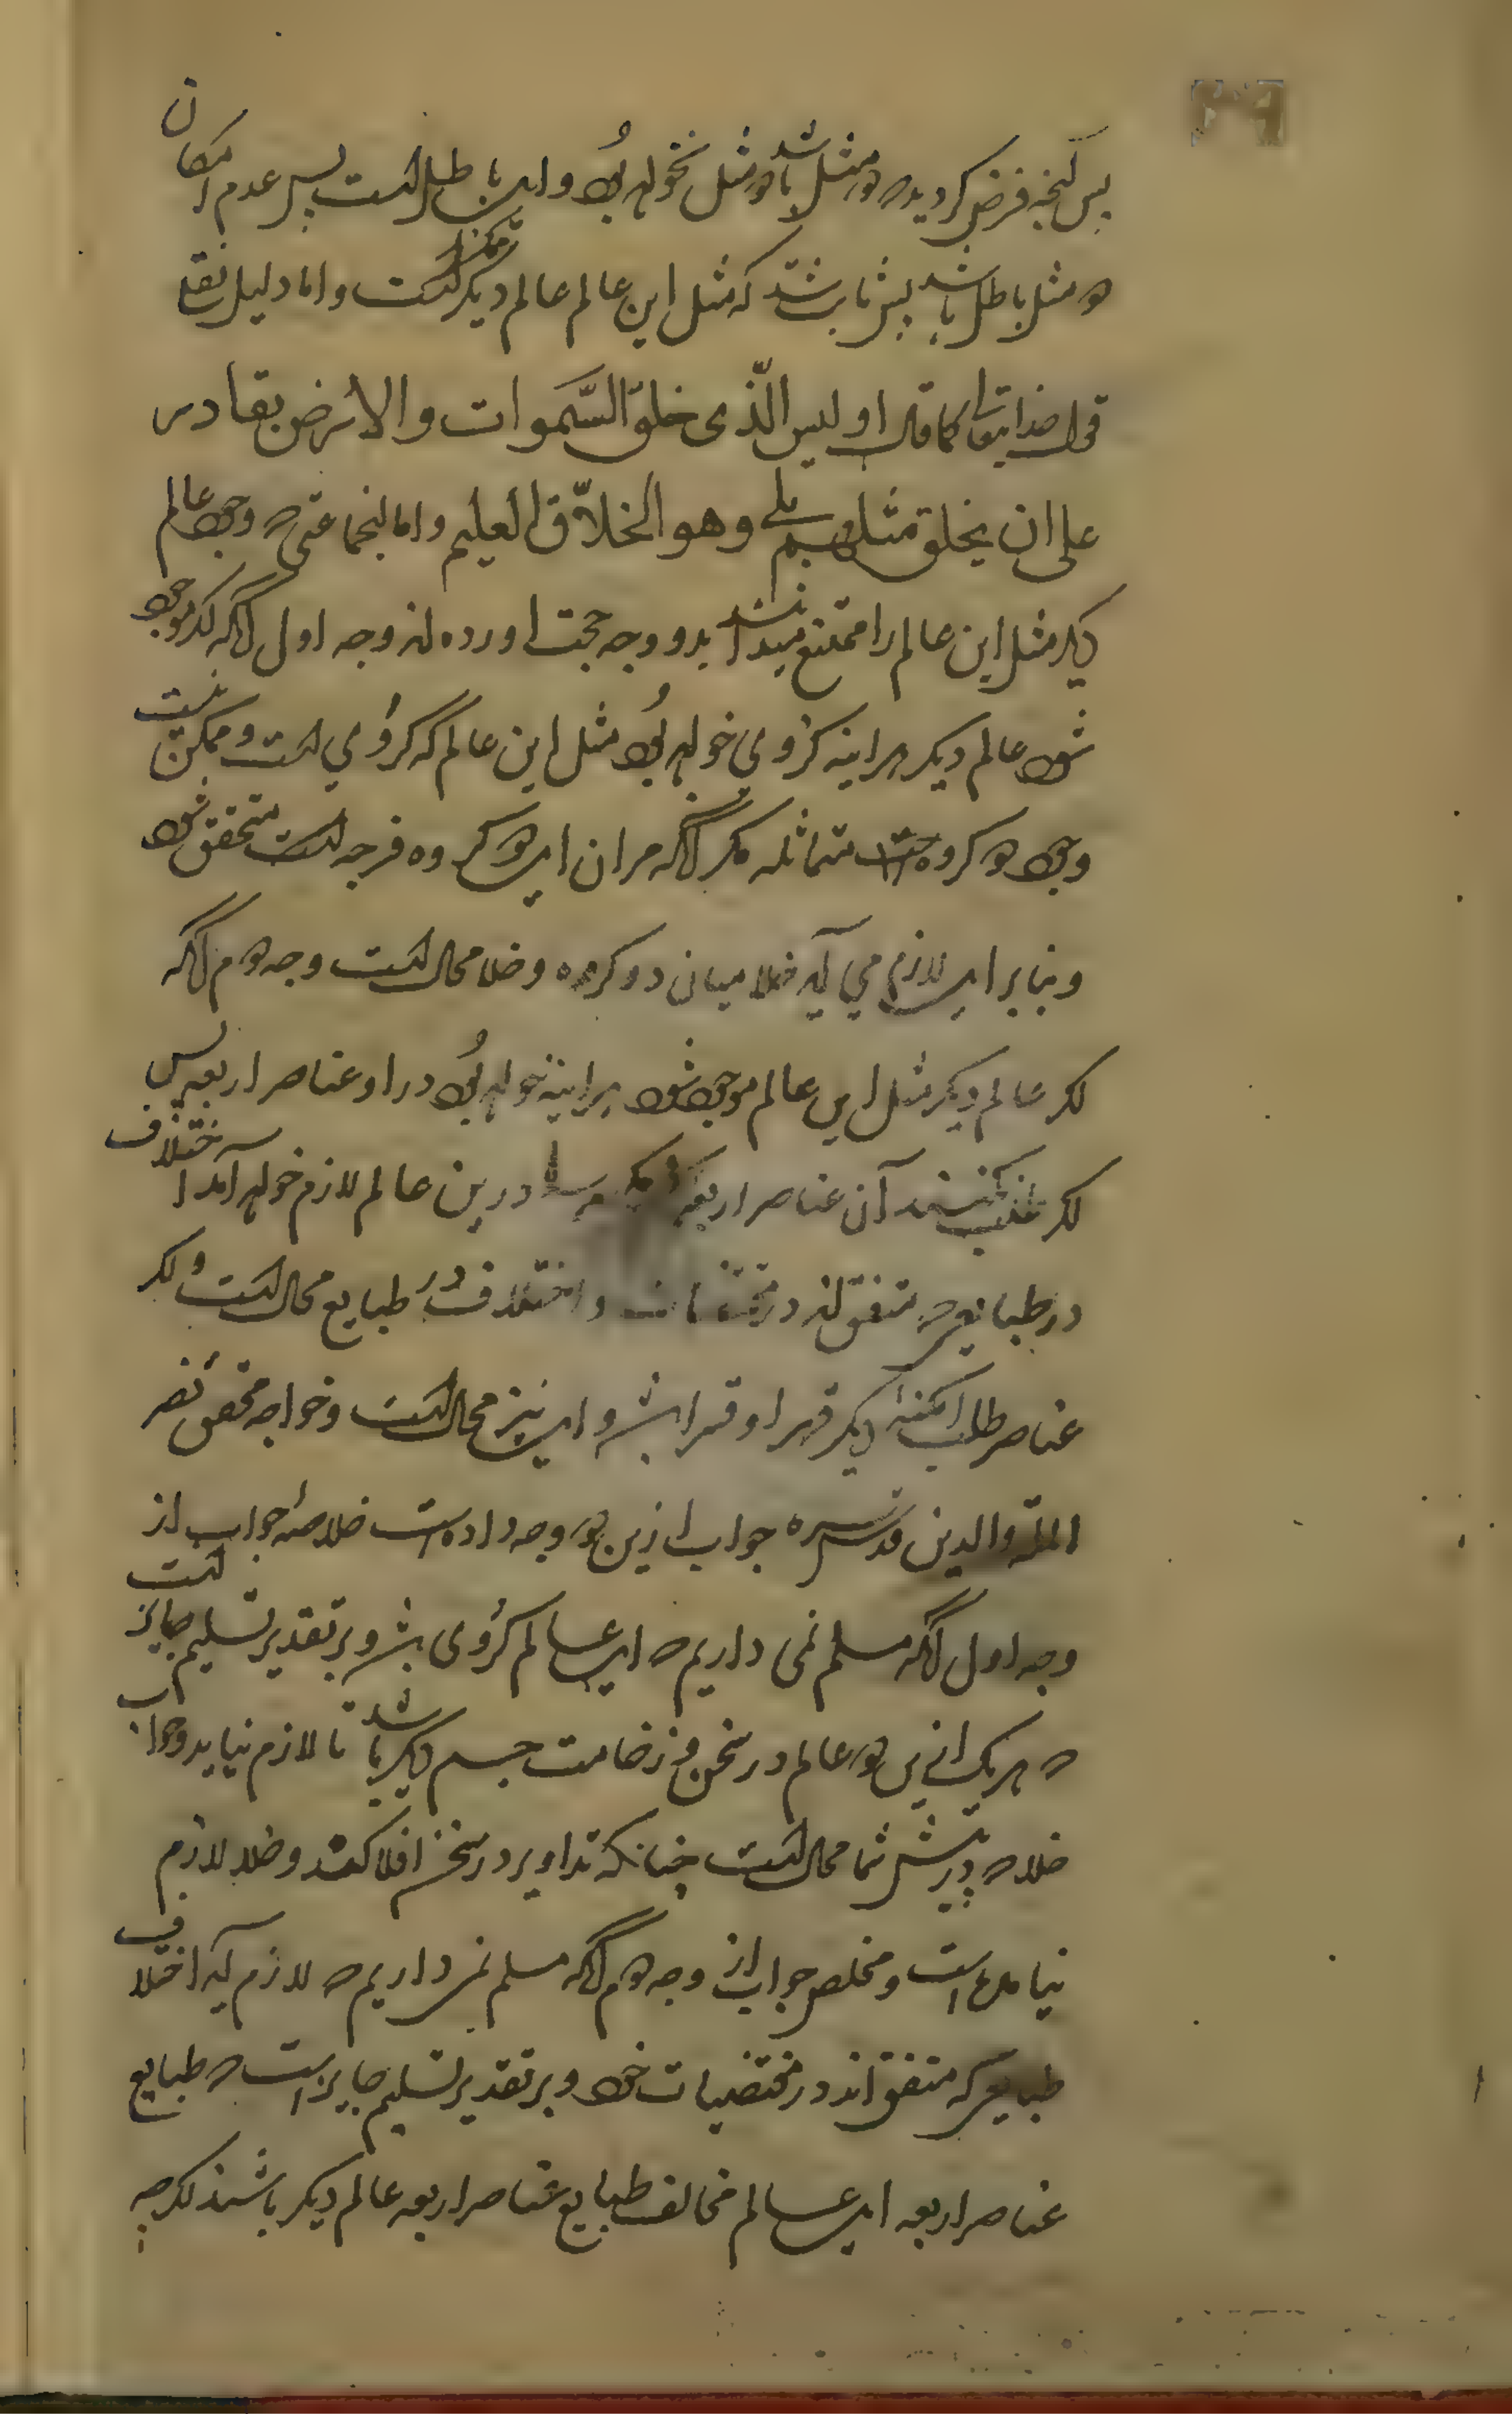 پس آنچه فرض کردید که دو مثل باشد دو مثل نخواهد بود و این باطل است پس عدم امکان
دو مثل باطل باشد پس ثابت شد که مثل این عالم عالم دیگر ممکن است و اما دلیل نقلی
قول خدایتعالی کما قال او لیس الّذی خلق السّموات والارض بقادر
علی ان یخلق مثلهم بلی وهو الخلاّق العلیم و اما آنجماعتی که وجود عالم
دیگر مثل این عالم را ممتنع میدانند بدو وجه حجت اورده اند وجه اول آنکه اگر موجود
شود عالم دیگر هراینه کروی خواهد بود مثل این عالم که کروی است و ممکن نیست
وجود دو کره متماثله مگر آنکه مران این دو کره فرجه است متحقق شود
و بنا بر این لازم می آید خلا میان دو کره و خلا محال است وجه دوم آنکه
اگر عالم دیگر مثل این عالم موجود شود هراینه خواهد بود در او عناصر اربعه پس
اگر طلب نکنند آن عناصر اربعه درین عالم لازم خواهد آمد اختلاف
در طبایعی که متفق اند در مقتضیات و اختلاف در طبایع محال است و اگر
عناصر طالب امکنه دیگر قهرا و قسرا باشد و این نیز محال است و خواجه محقق نصیر
الملّه والدین قدس سره جواب ازین دو وجه داده است خلاصه جواب از
وجه اول آنکه مسلم نمی داریم که این عالم کروی باشد و بر تقدیر تسلیم جایز است
که هر یک ازین دو عالم در ثخن و ضخامت جسم دیگر باشد تا لازم نیاید وجود
خلا که در پیش شما محال است چنانکه تداویر در ثخن افلاک اند و خلا لازم
نیامده است و مخلص جواب از وجه دوم آنکه مسلم نمی داریم که لازم آید اختلاف
طبایعی که متفق اند در مقتضیات خود و بر تقدیر تسلیم جایز است که طبایع
عناصر اربعه این عالم مخالف طبایع عناصر اربعه عالم دیگر باشند اگرچه